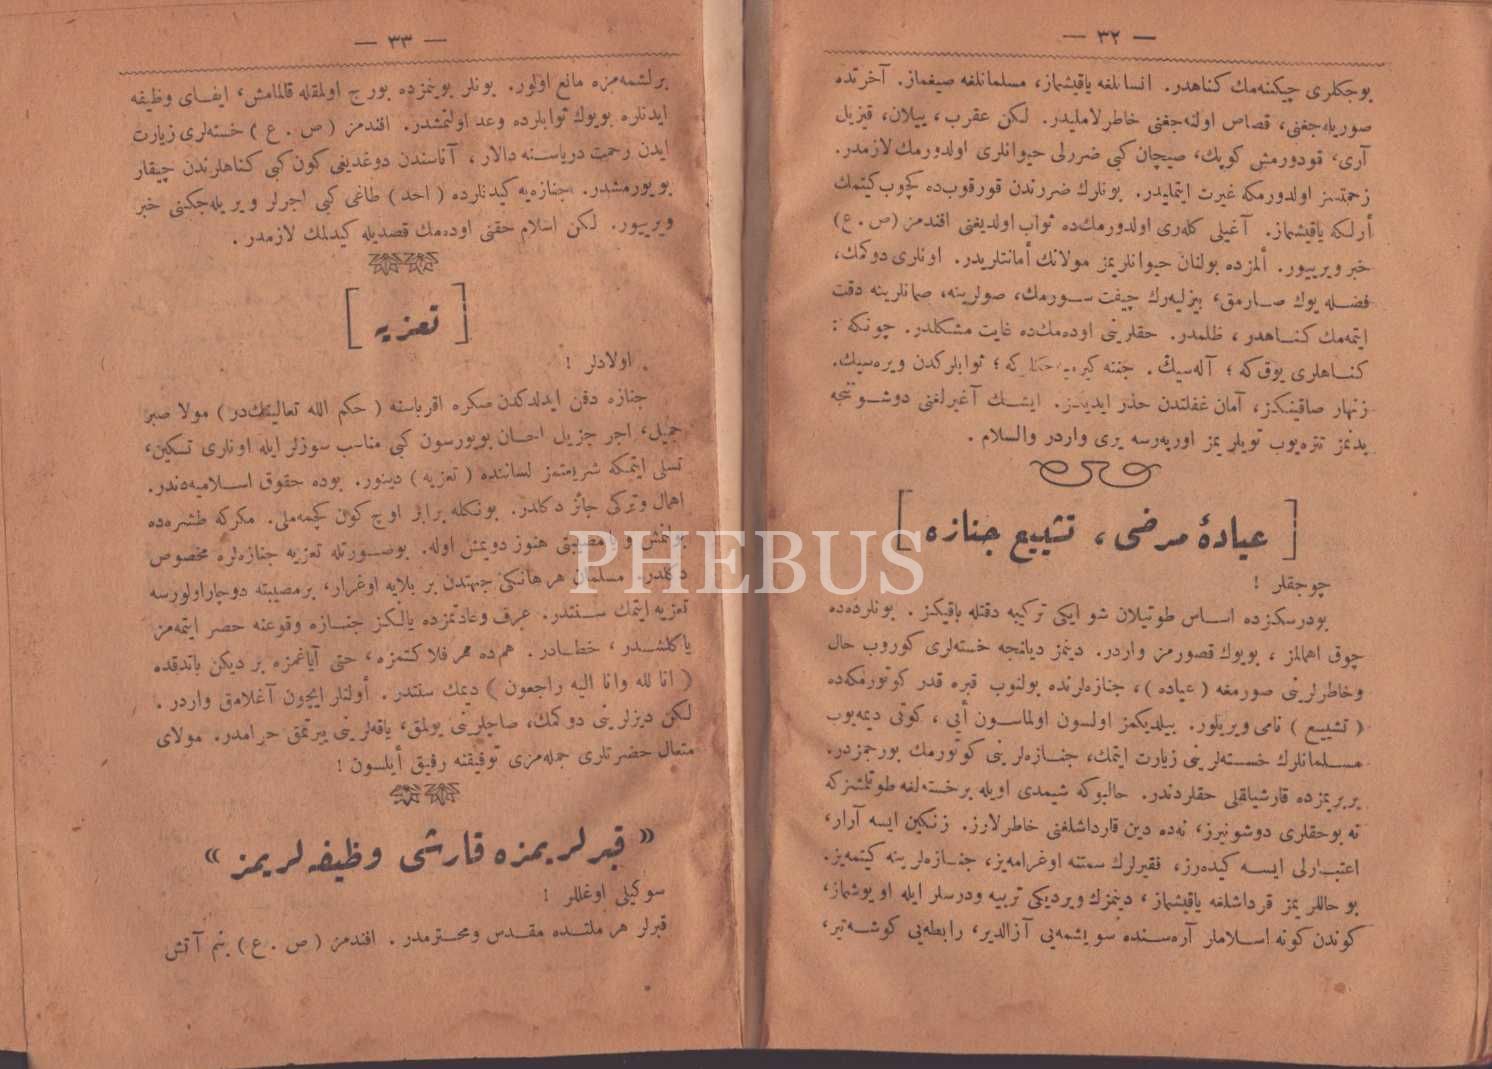 — ٣٢ —
بوجكلرى چیكنه‌مك كناهدر. انسانلغه یاقیشماز، مسلمانلغه صیغماز. آخرتده
صوریله‌جغنى، قصاص اولنه‌جغنى خاطرلاملیدر. لكن عقرب، ییلان، قیزیل
آرى، قودورمش كوپك، صیچان كبى ضررلى حیوانلرى اولدورمك لازمدر.
زحمتسز اولدورمكه غیرت ایتملیدر. بونلرك ضررندن قورقوب‌ده كچوب كیتمك
أرلكه یاقیشماز. آغیلى كله‌رى اولدورمك‌ده ثواب اولدیغنى افندمز (ص . ع)
خبر ویرییور. ألمزده بولنان حیوانلریمز مولانك أمانتلریدر. اونلرى دوكمك،
فضـله یوك صـارمق، بیزلیه‌رك چیفت سـورمك، صولرینه، صمانلرینه دقت
ایتمه‌مك كنـاهدر ، ظلمدر. حقلرینى اوده‌مك‌ده غایت مشكلدر. چونكه :
كنـاهلرى یوق‌كه ؛ آله‌سیڭ . جنته كیرمیه‌جكلركه ؛ ثوابلركدن ویره‌سیك.
زنهار صاقینكز، آمان غفلتدن حذر ایدیكز. ایشـك آغیرلغنى دوشـونجه
بدنمز تتره‌یوب تویلریمز اورپه‌رسه یرى واردر والسلام .
[ عیادۀ مرضى ، تشییع جنازه ]
چوجقلر !
بودرسكزده اسـاس طوتیلان شو ایكى تركیبه دقتله باقیكز . بونلرده‌ده
چوق اهمالمز ، بویوك قصورمز واردر. دینمز دیانتجه خسته‌لرى كوروب حال
وخاطرلرینى صورمغه (عیاده) ، جنازه‌لرنده بولنوب قبره قدر كوتورمكه‌ده
( تشییـع ) نامى ویریلور. بیلدیكمز اولسون اولماسون أیى ، كوتى دیمه‌یوب
مسـلمانلرك خسـته‌لرینى زیارت ایتمك، جنـازه‌لرینى كوتورمك بورجمزدر.
بربریمزده قارشیلقلى حقلردندر. حالبوكه شیمدى اویله برخسته‌لغه طوتلمشزكه
نه بوحقلرى دوشونیرز، نه‌ده دین قارداشلغنى خاطرلارز. زنكین ایسه آرار،
اعتبـارلى ایسـه كیده‌رز، فقیرلرك سمتنه اوغرامه‌یز، جنـازه‌لرینه كیتمه‌یز.
بو حاللریمز قرداشلغه یاقیشماز، دینمزك ویردیكى تربیه ودرسلر ایله اویوشماز،
كوندن كونه اسـلاملر آره‌سـنده سویشمه‌یى آزالدیر، رابطه‌یى كوشه‌تیر،
— ٣٣ —
برلشمه‌مزه مانع اولور. بونلر بوینمزده بورج اولمقله قالمامش، ایفـاى وظیفه
ایدنلره بویوك ثوابلرده وعد اولنمشدر. افندمز (ص . ع) خسته‌لرى زیارت
ایدن رحمت دریاسـنه دالار ، آناسندن دوغدیغى كون كبى كناهلرندن چیقار
بویورمشدر. جنازه‌یه كیدنلرده ( احد ) طاغى كبى اجرلر ویریله‌جكنى خبر
ویرییور. لكن اسلام حقنى اوده‌مك قصدیله كیدلمك لازمدر .
[ تعزیه ]
اولادلر !
جنازه دفن ایدلدكدن صكره اقرباسنه ( حكم الله تعالینكدر ) مولا صبر
جمیل، اجر جزیل احسان بویورسون كبى مناسب سوزلر ایله اونلرى تسكین،
تسلى ایتمكه شریعتمز لساننده ( تعزیه ) دینور. بوده حقوق اسـلامیه‌دندر.
اهمال وتركى جائز دكلدر. بونكله برابر اوچ كون كچمه‌ملى. مكركه طشره‌ده
بولنمش و یا مصیبتى هنوز دویمش اوله. بوصـورتله تعزیه جنازه‌لره مخصوص
دكلدر. مسلمان هر هانكى جهتدن بر بلایه اوغرار، برمصیبته دوچار اولورسه
تعزیه ایتمك سـنتدر. عرف وعادتمزده یالكز جنـازه وقوعنه حصر ایتمه‌مز
یاكلشـدر ، خطـادر. هم‌ده هر فلاكتمزه، حتى آیاغمزه بر دیكن باتدقده
( انا لله وانا الیه راجعون ) دیمك سنتدر. أولنلر ایچون آغلامق واردر .
لكن دیزلرینى دوكمك، صاچلرینى یولمق، یاقه‌لرینى ییرتمق حرامدر. مولاى
متعال حضرتلرى جمله‌مزى توفیقنه رفیق أیلسون !
« قبرلریمزه قارشى وظیفه‌لریمز »
سوكیلى اوغللر !
قبرلر هر ملتـده مقـدس ومحترمدر . افندمز (ص . ع) ینم آتش
PHEBUS